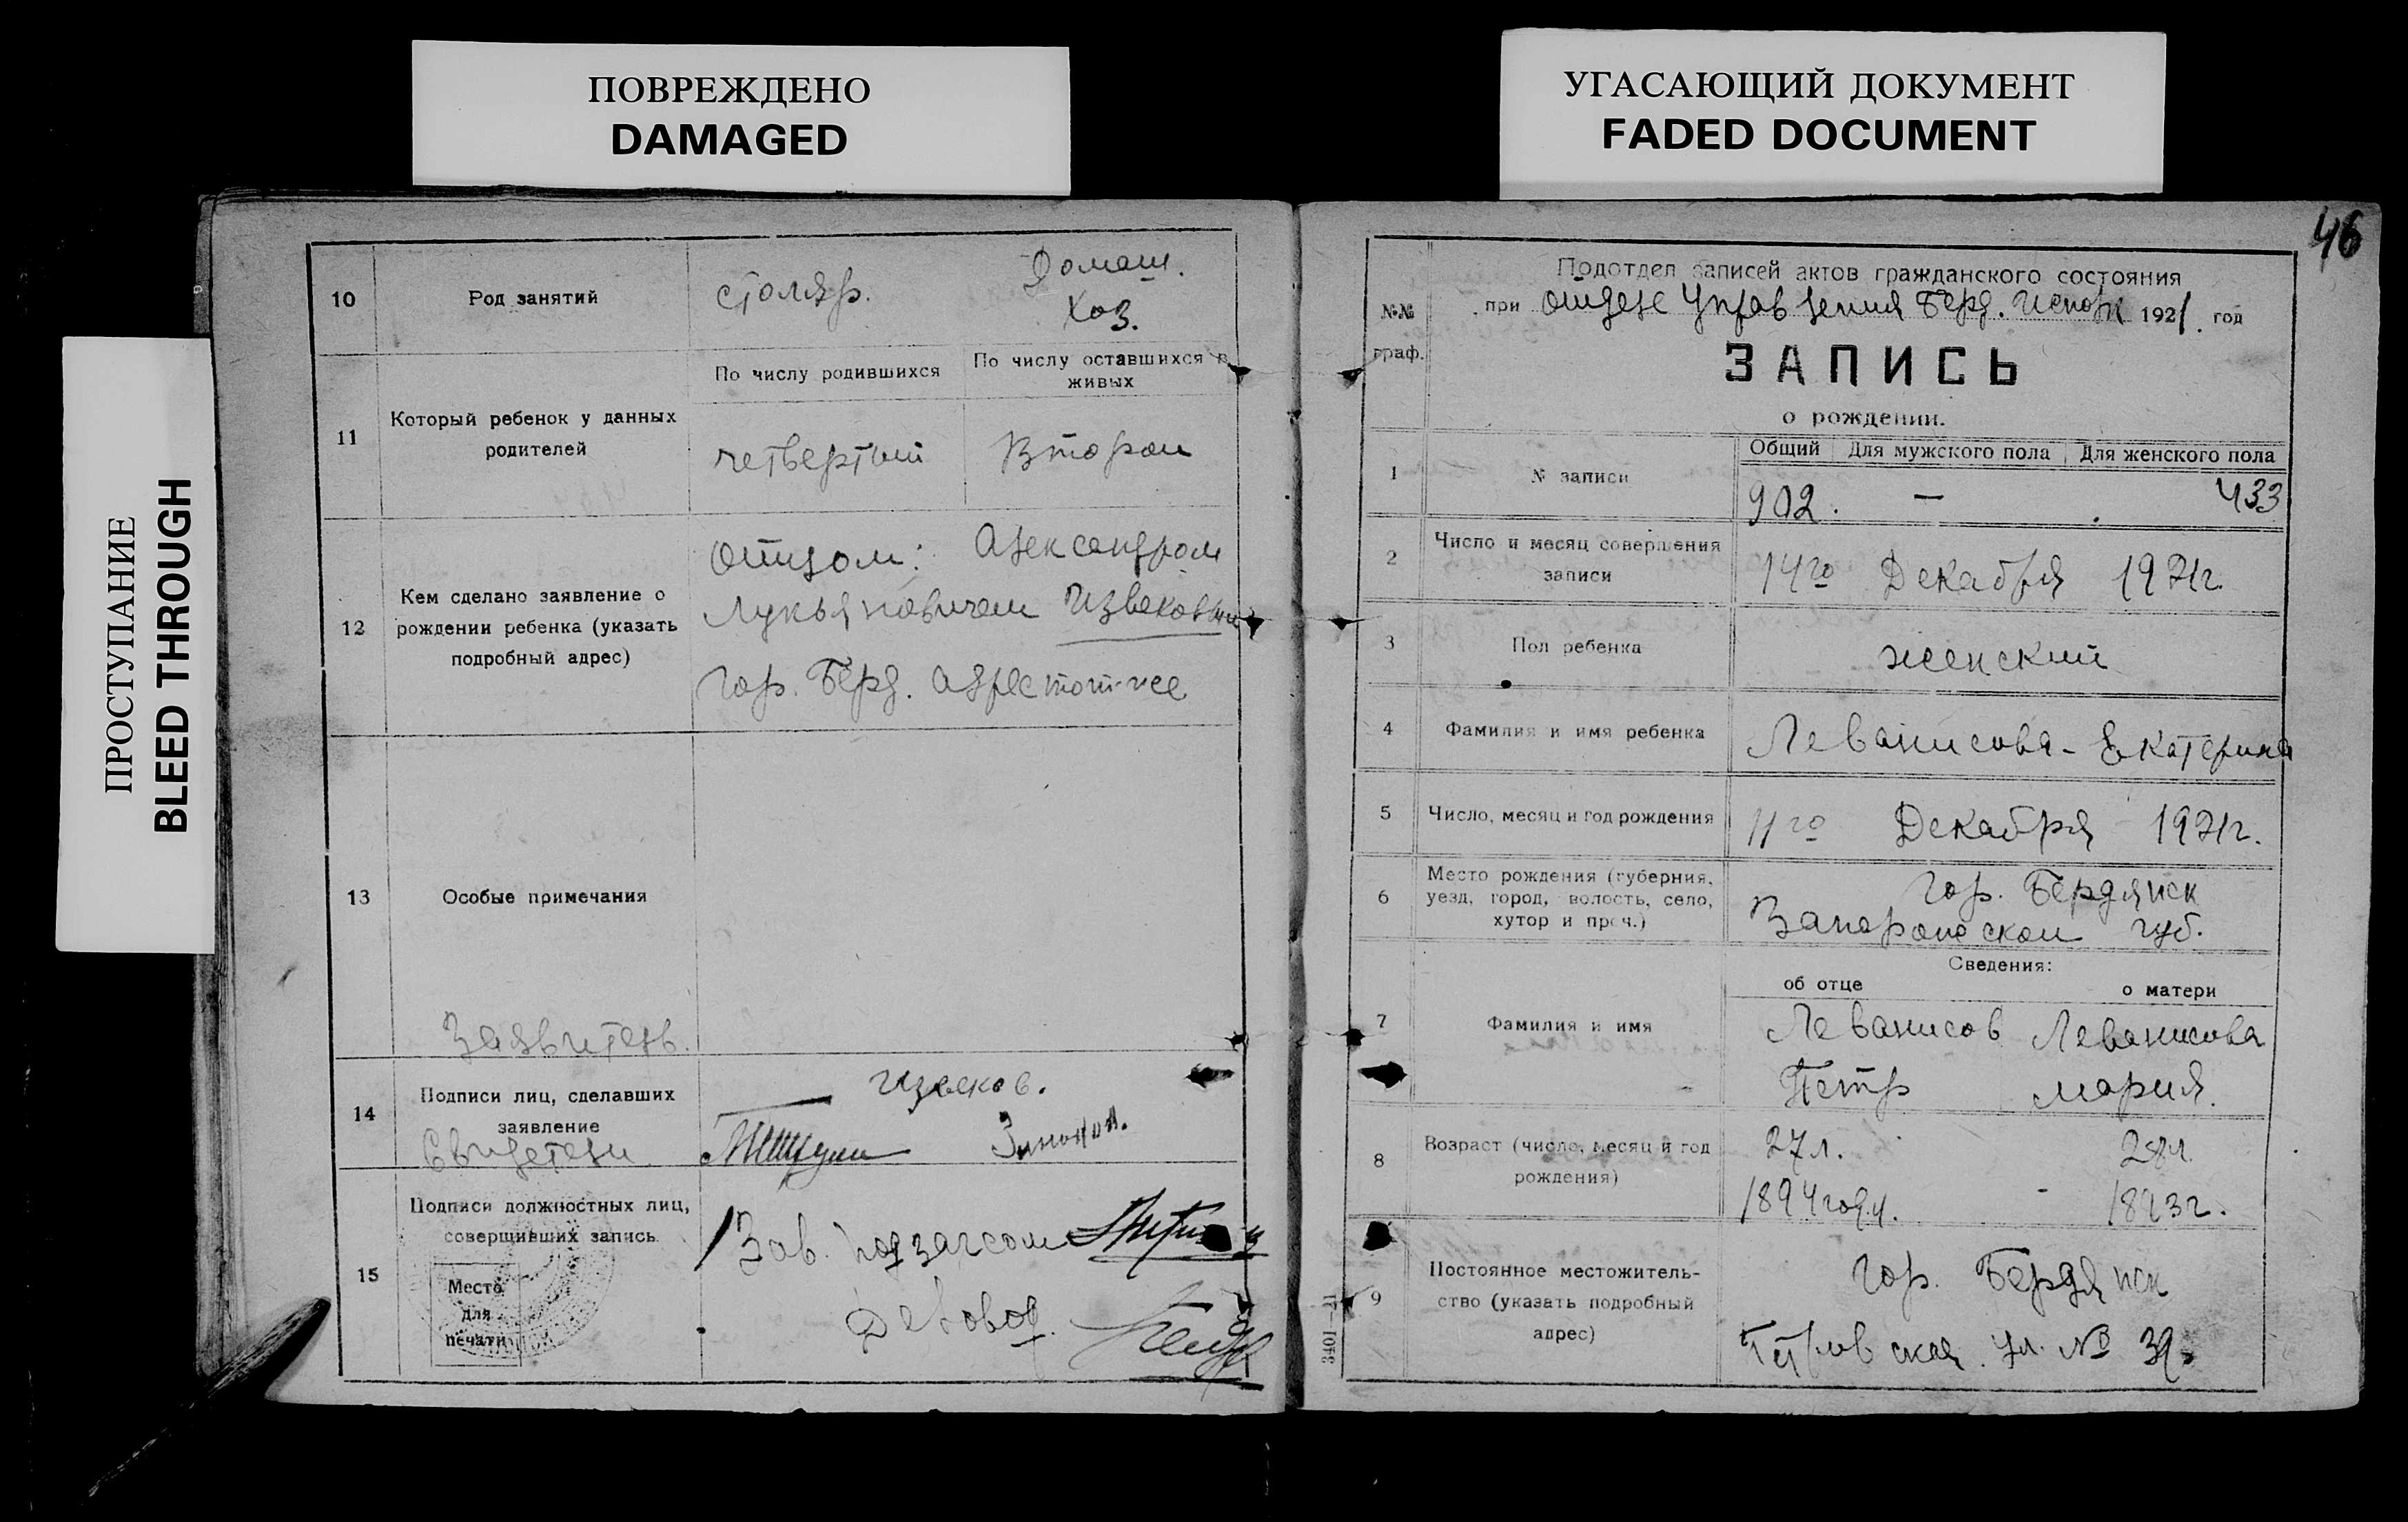 ПОВРЕЖДЕНО
DAMAGED
УГАСАЮЩИЙ ДОКУМЕНТ
FADED DOCUMENT
ПРОСТУПАНИЕ
BLEED THROUGH
10
Род занятий
столяр.
Домаш.
Хоз.
11
Который ребенок у данных
родителей
По числу родившихся
По числу оставшихся в
живых
четвертый
Второй
12
Кем сделано заявление о
рождении ребенка (указать
подробный адрес)
Отцом: Александром
Лукьяновичем Извековым
гор. Берд.
13
Особые примечания
Заявитель.
14
Подписи лиц, сделавших
заявление
Свидетели
Извеков.
15
Подписи должностных лиц,
совершивших запись
Место
для
печати
Зав. подзагсом
Деловод.
46
№№
граф.
Подотдел записей актов гражданского состояния
при Отделе Управления Берд. Исполк 1921. год
ЗАПИСЬ
о рождении.
1
№ записи
Общий Для мужского пола Для женского пола
902. — 433
2
Число и месяц совершения
записи
14го Декабря 1921г.
3
Пол ребенка
женский
4
Фамилия и имя ребенка
Леванисова - Екатерина
5
Число, месяц и год рождения
11го Декабря 1921г.
6
Место рождения (губерния,
уезд, город, волость, село,
хутор и проч.)
гор. Бердянск
Запорожской губ.
Сведения:
об отце
о матери
7
Фамилия и имя
Леванисов
Петр
Леванисова
Мария.
8
Возраст (число, месяц и год
рождения)
27л.
1894 году.
28л.
1893г.
9
Постоянное местожитель-
ство (указать подробный
адрес)
гор. Бердянск
Петровская ул. №
17—1043